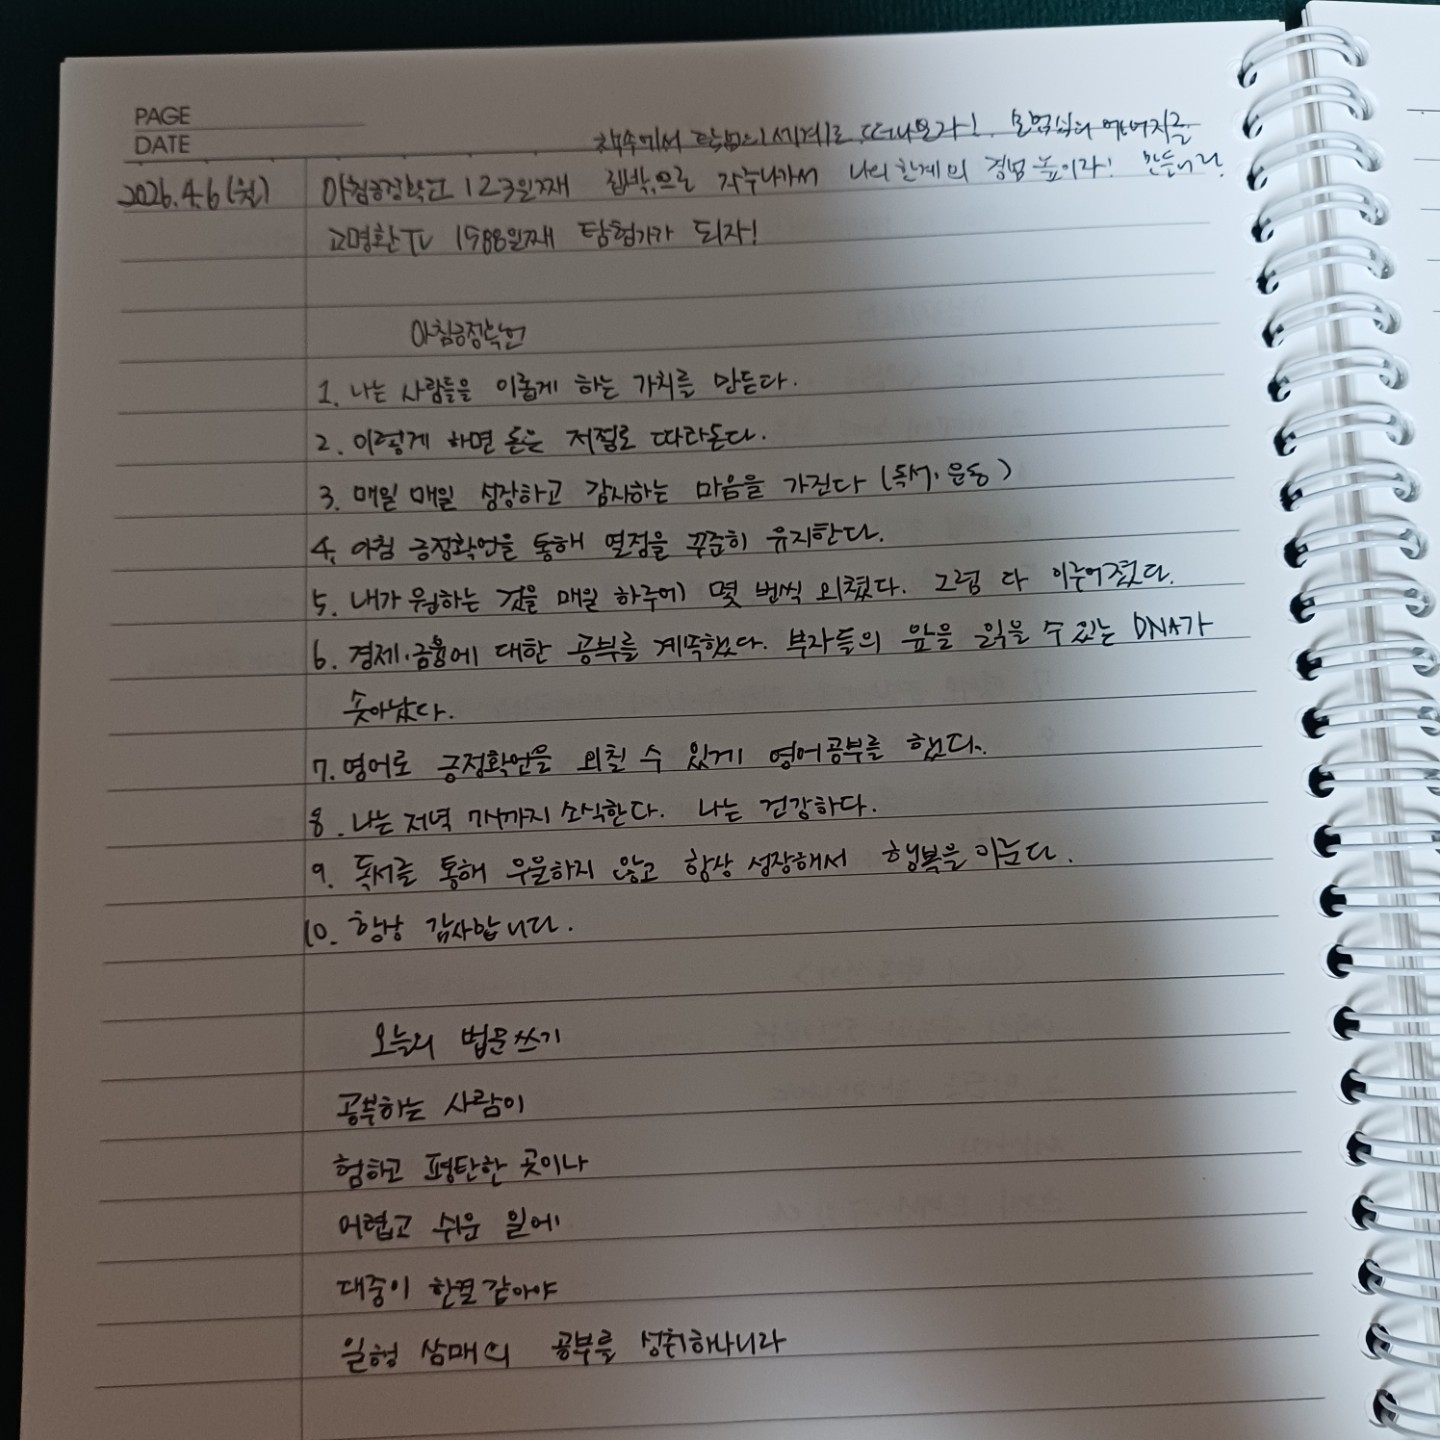 PAGE
DATE
책속에서 탐험의 세계로 떠나보자! 호기심의 에너지를
2026.4.6(월) 아침긍정확언 123일째 집밖으로 자주나가서 나의한계의 경험높이라! 만들어라.
고명환TV 1588일째 탐험가가 되자!
아침긍정확언
1. 나는 사람들을 이롭게 하는 가치를 만든다.
2. 이렇게 하면 돈은 저절로 따라온다.
3. 매일 매일 성장하고 감사하는 마음을 가진다 (독서·운동)
4. 아침 긍정확언을 통해 열정을 꾸준히 유지한다.
5. 내가 원하는 것을 매일 하루에 몇 번씩 외쳤다. 그럼 다 이루어졌다.
6. 경제·금융에 대한 공부를 계속했다. 부자들의 앞을 읽을 수 있는 DNA가
솟아났다.
7. 영어로 긍정확언을 외칠 수 있게 영어공부를 했다.
8. 나는 저녁 7시까지 소식한다. 나는 건강하다.
9. 독서를 통해 우울하지 않고 항상 성장해서 행복을 이룬다.
10. 항상 감사합니다.
오늘의 법문쓰기
공부하는 사람이
험하고 평탄한 곳이나
어렵고 쉬운 일에
대중이 한결같아야
일행 삼매의 공부를 성취하나니라